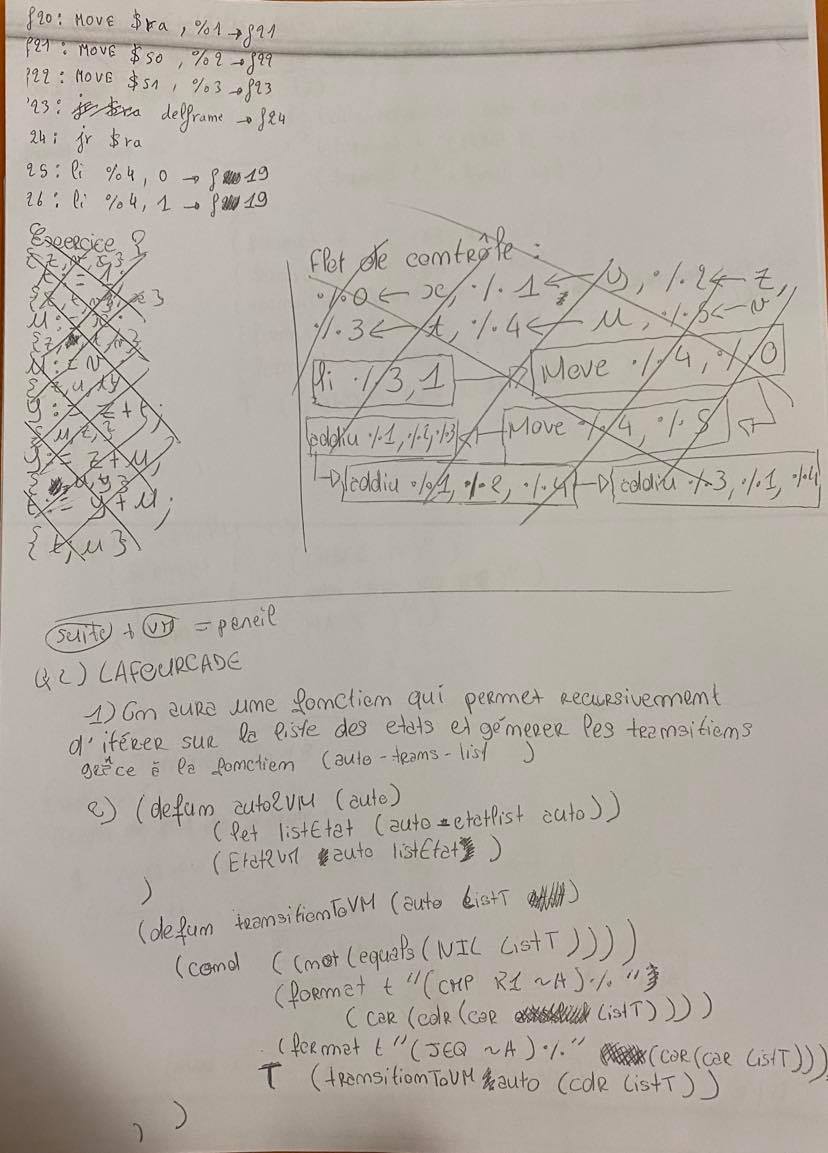 f20: MOVE $ra, %1 → f21
f21: MOVE $s0, %2 → f22
f22: MOVE $s1, %3 → f23
23: delframe → f24
24: jr $ra
25: li %4, 0 → f19
26: li %4, 1 → f19
Exercice ?
{z, v, x}
t := 1;
u := x;
u := v
{z, u, t}
y := z + t;
{u, z}
y := z + u;
{u, y}
t := y + u;
{t, u}
Flot de contrôle :
%0 ← x, %1 ← y, %2 ← z,
%3 ← t, %4 ← u, %5 ← v
li %3, 1 → Move %4, %0
addiu %1, %2, %3 ← Move %4, %5
→ addiu %1, %2, %4 → addiu %3, %1, %4
suite + VM = pencil
Q2) LAFOURCADE
1) On aura une fonction qui permet recursivement
d'itérer sur la liste des etats et génerer les transitions
grâce à la fonction (auto-trans-list )
2) (defun auto2VM (auto)
(let listEtat (auto-etatlist auto))
(Etat2VM auto listEtat )
)
(defun transitionToVM (auto listT )
(cond ((not (equals (NIL listT))))
(format t "(CMP R1 ~A)%"
(car (cdr (car listT))))
(format t "(JEQ ~A)%" (car (car listT)))
T (transitionToVM auto (cdr listT))
) )